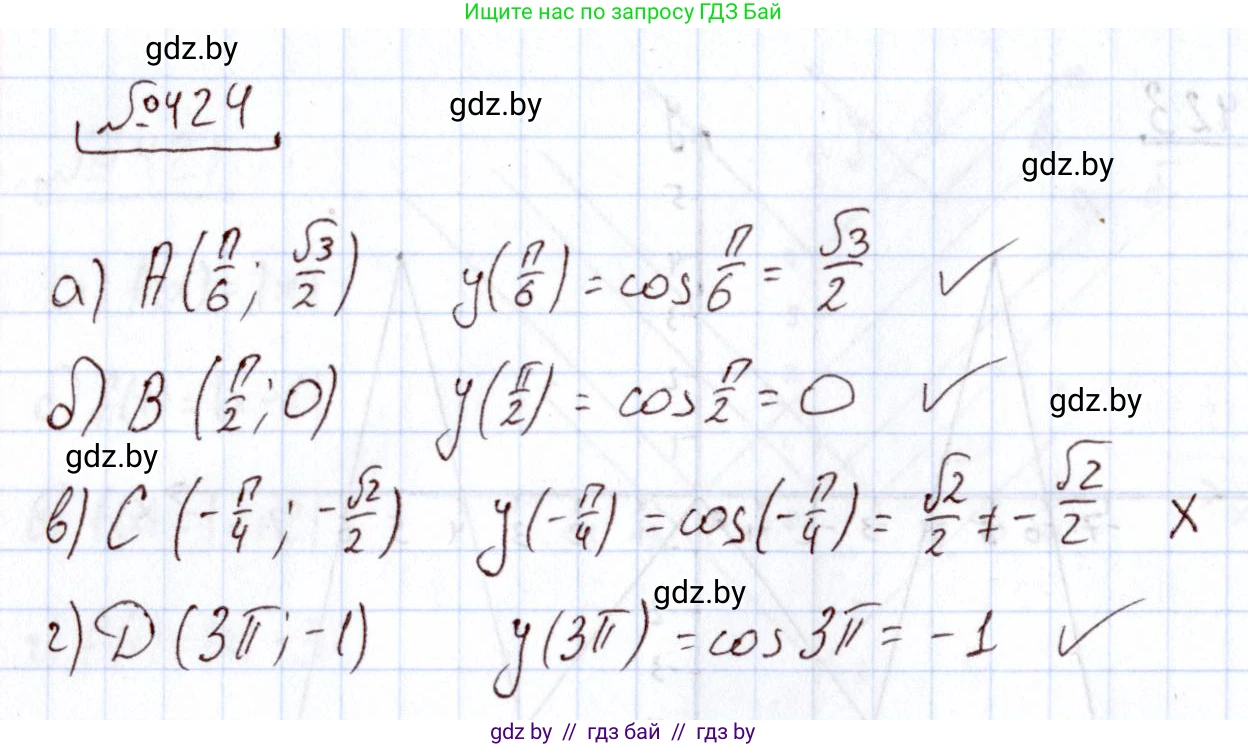 Ищите нас по запросу ГДЗ Бай
gdz.by
№424
gdz.by
gdz.by
а) A(π/6; √3/2) y(π/6) = cos π/6 = √3/2 ✓
б) B (π/2; 0) y(π/2) = cos π/2 = 0 ✓
gdz.by
gdz.by
в) C (-π/4; -√2/2) y(-π/4) = cos(-π/4) = √2/2 ≠ -√2/2 X
gdz.by
г) D (3π; -1) y(3π) = cos 3π = -1 ✓
gdz.by // гдз бай // gdz.by